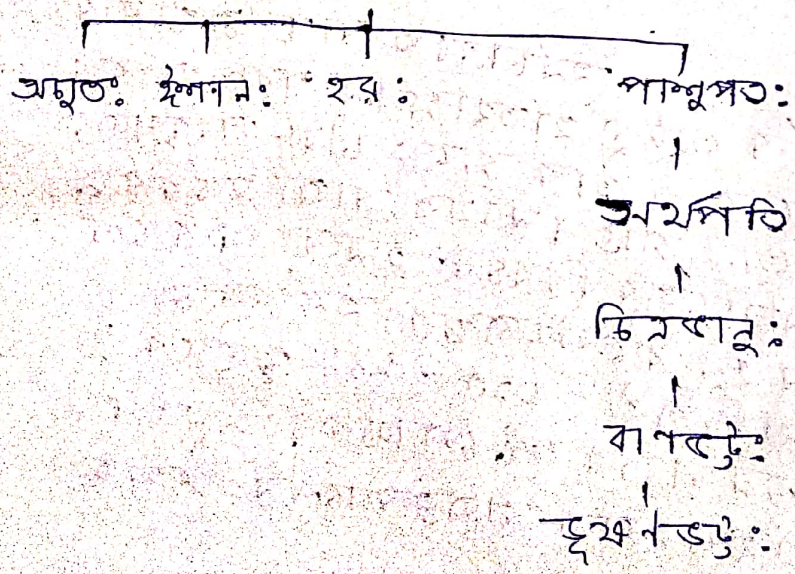 অচ্যুতঃ ঈশানঃ হরঃ পাশুপতঃ
অর্থপতি
চিত্রভানুঃ
বাণভট্টঃ
ভূষণভট্টঃ